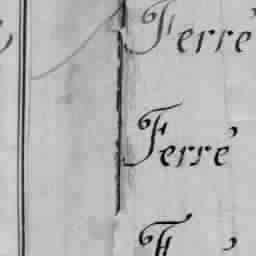 Ferré
Ferré